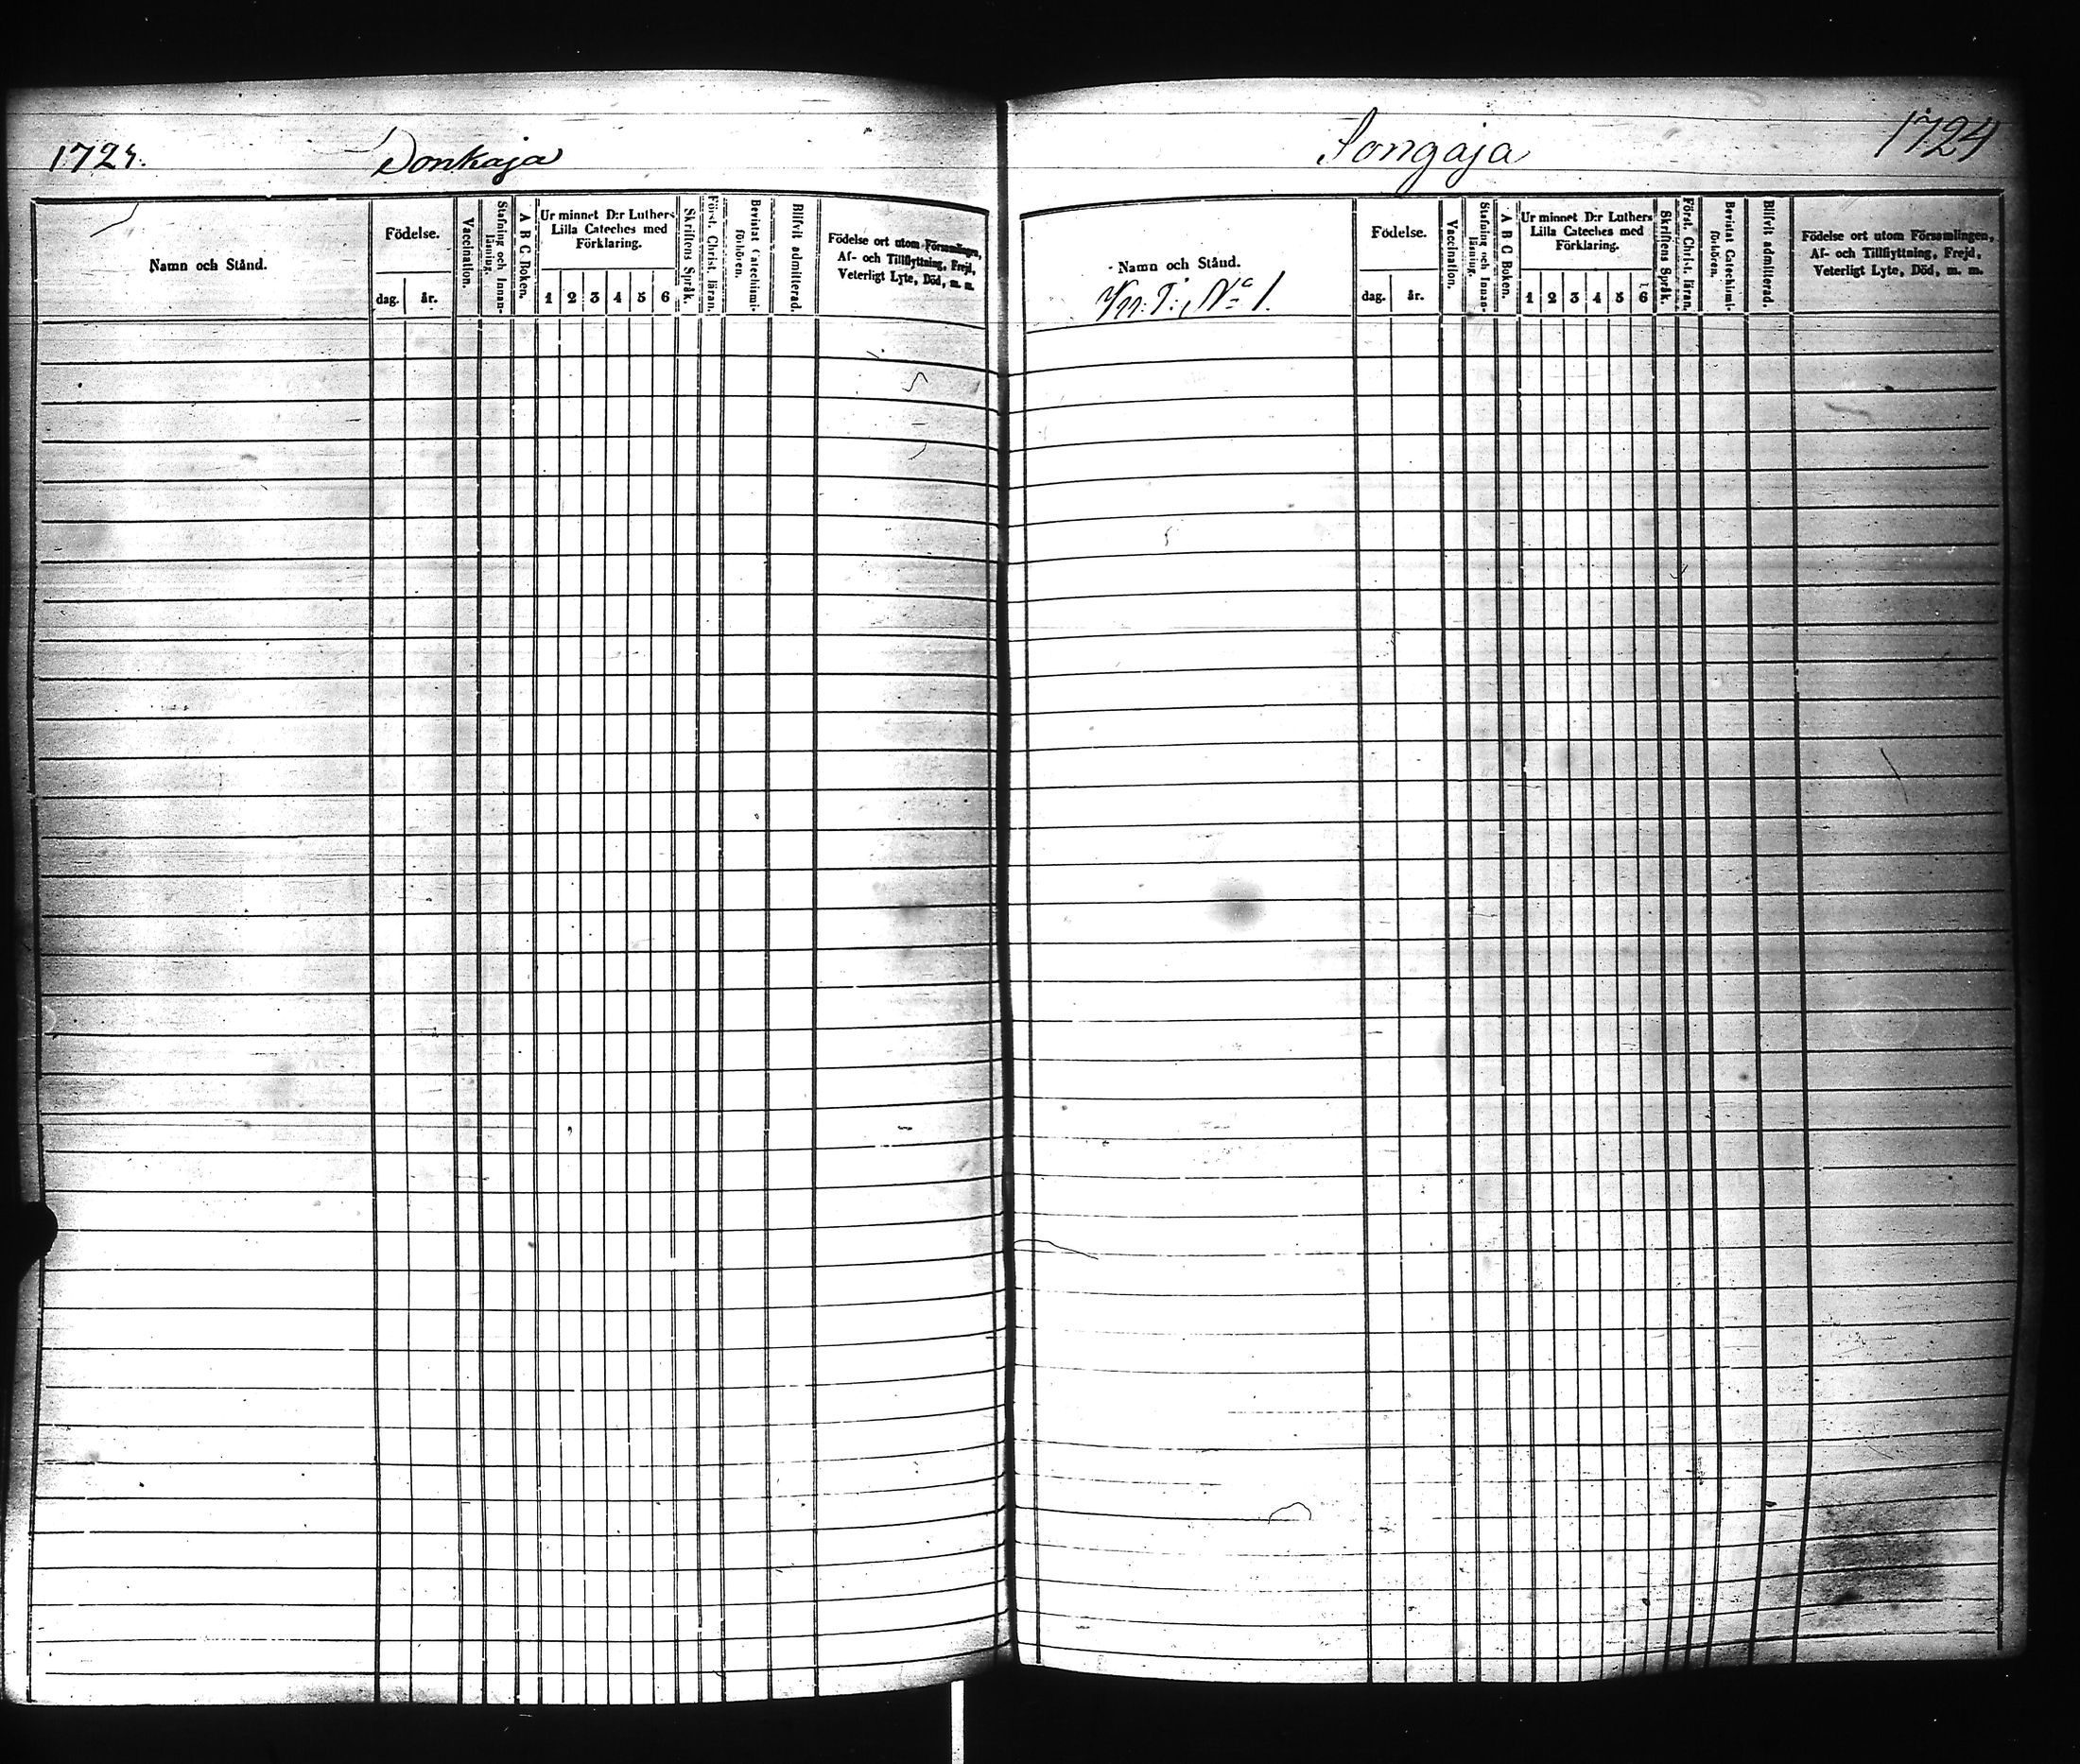 1724.
Donkaja
Namn och Stånd.
Födelse.
dag.
år.
Vaccination.
Stafning och Innan-
läsning.
A B C Boken.
Ur minnet D:r Luthers
Lilla Cateches med
Förklaring.
1 2 3 4 5 6
Skriftens Språk.
Först. Christ. läran.
Bevistat Catechismi-
förhören.
Blifvit admitterad.
Födelse ort utom Församlingen,
Af- och Tillflyttning, Frejd,
Veterligt Lyte, Död, m. m.
Songaja
1724
Namn och Stånd.
No 1.
Födelse.
dag.
år.
Vaccination.
Stafning och Innan-
läsning.
A B C Boken.
Ur minnet D:r Luthers
Lilla Cateches med
Förklaring.
1 2 3 4 5 6
Skriftens Språk.
Först. Christ. läran.
Bevistat Catechismi-
förhören.
Blifvit admitterad.
Födelse ort utom Församlingen,
Af- och Tillflyttning, Frejd,
Veterligt Lyte, Död, m. m.